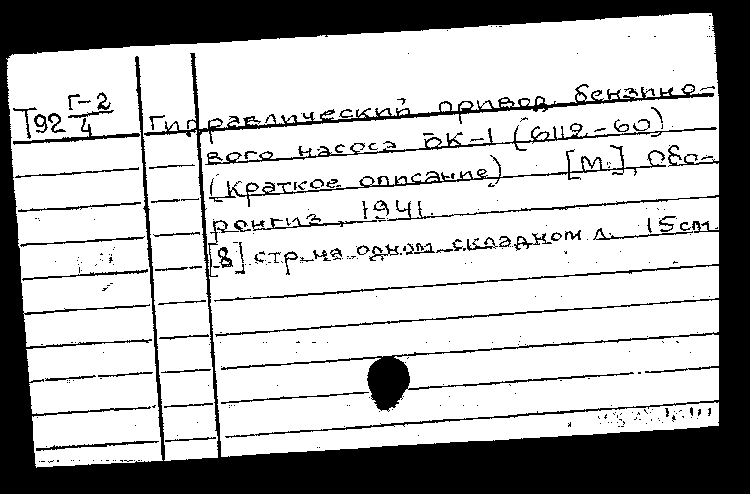 Т92 Г-2/4
Гидравлический привод бензино-
вого насоса БК-1 (6112-60)
(Краткое описание) [М.], Обо-
ронгиз, 1941.
[8] стр. на одном складном л. 15см